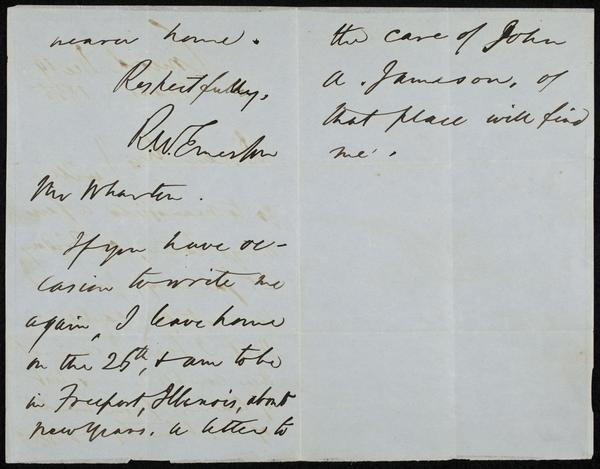 nearer home.
Respectfully,
R.W. Emerson
Mr Wharton.
If you have oc-
casion to write me
again, I leave home
on the 25th, & am to be
in Freeport, Illinois, about
New Years. A letter to
the care of John
A. Jameson, of
that place will find
me.